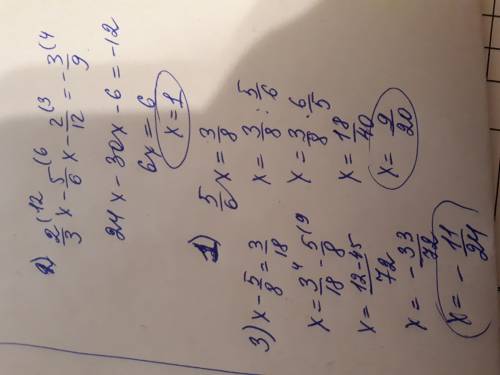 2) 2/3 (12 x - 5/6 (6 x - 2/12 (3 = - 3/9 (4
24x - 30x - 6 = -12
6x = 6
x = 1
1) 5/6 x = 3/8
x = 3/8 : 5/6
x = 3/8 · 6/5
x = 18/40
x = 9/20
3) x - 5/8 = 3/18
x = 3/18 (4 - 5/8 (9
x = 12-45/72
x = - 33/72
x = - 11/24